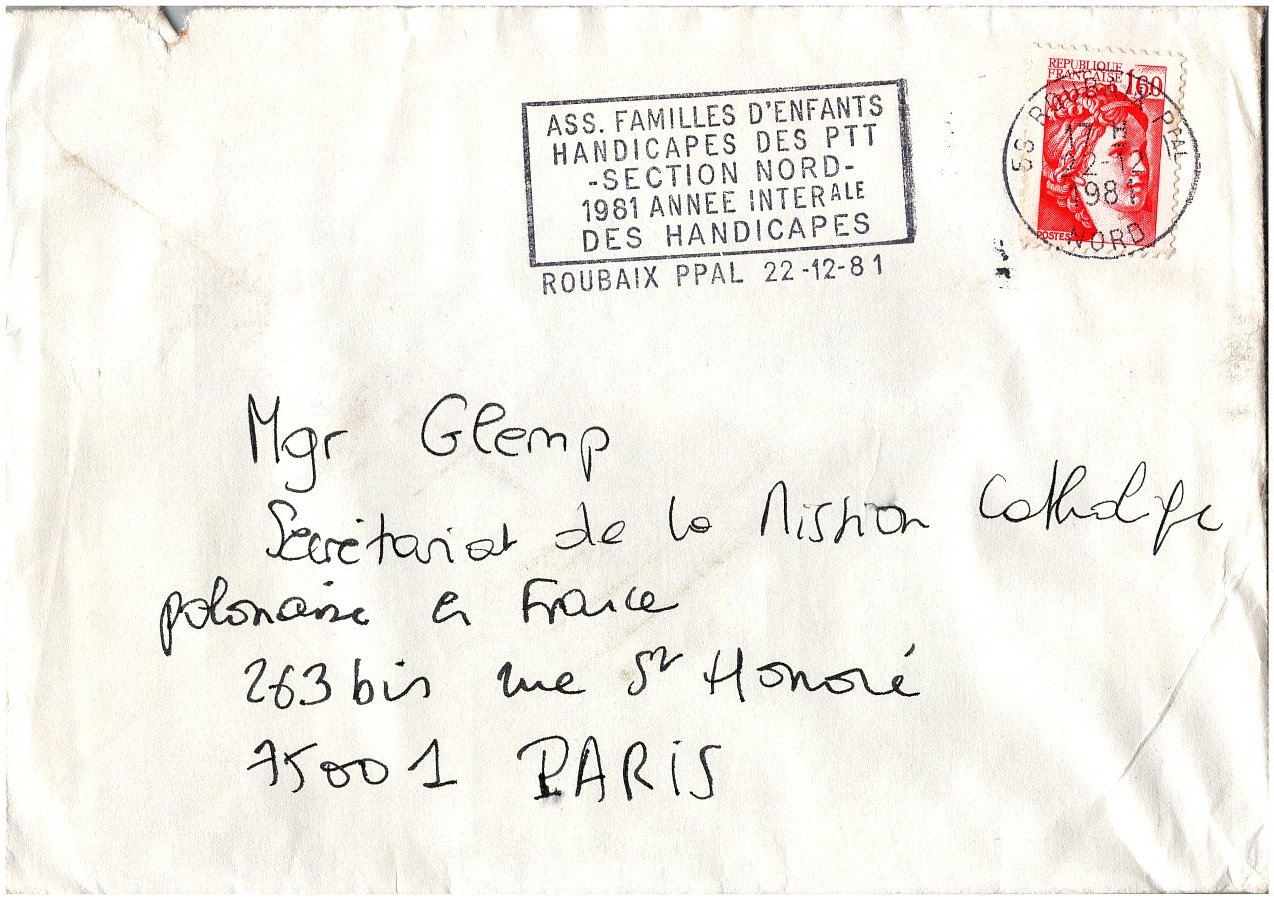 ASS. FAMILLES D'ENFANTS
HANDICAPES DES PTT
-SECTION NORD-
1981 ANNEE INTERALE
DES HANDICAPES
ROUBAIX PPAL 22-12-81
REPUBLIQUE
FRANÇAISE 1,60
POSTES
59 ROUBAIX PPAL
17 H
22-12
1981
NORD
Mgr Glemp
Secrétariat de la Mission Catholique
polonaise en France
263 bis rue St Honoré
75001 PARIS